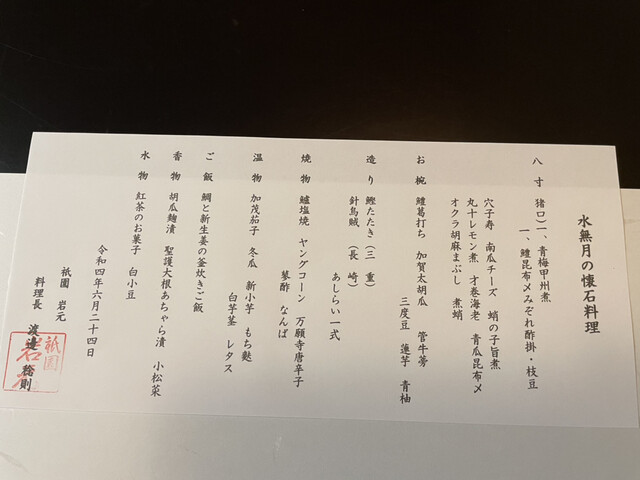 水無月の懐石料理
八寸 猪口)一、青梅甲州煮
一、鱧昆布〆みぞれ酢掛・枝豆
穴子寿 南瓜チーズ 蛸の子旨煮
丸十レモン煮 才巻海老 青瓜昆布〆
オクラ胡麻まぶし 煮蛸
お椀 鱧葛打ち 加賀太胡瓜 管牛蒡
三度豆 蓮芋 青柚
造り 鰹たたき(三 重)
針烏賊 (長 崎)
あしらい一式
焼物 鱸塩焼 ヤングコーン 万願寺唐辛子
蓼酢 なんば
温物 加茂茄子 冬瓜 新小芋 もち麩
白芋茎 レタス
ご飯 鯛と新生姜の釜炊きご飯
香物 胡瓜麹漬 聖護大根あちゃら漬 小松菜
水物 紅茶のお菓子 白小豆
令和四年六月二十四日
祇園 岩元
料理長 渡邉 裕則
祇園